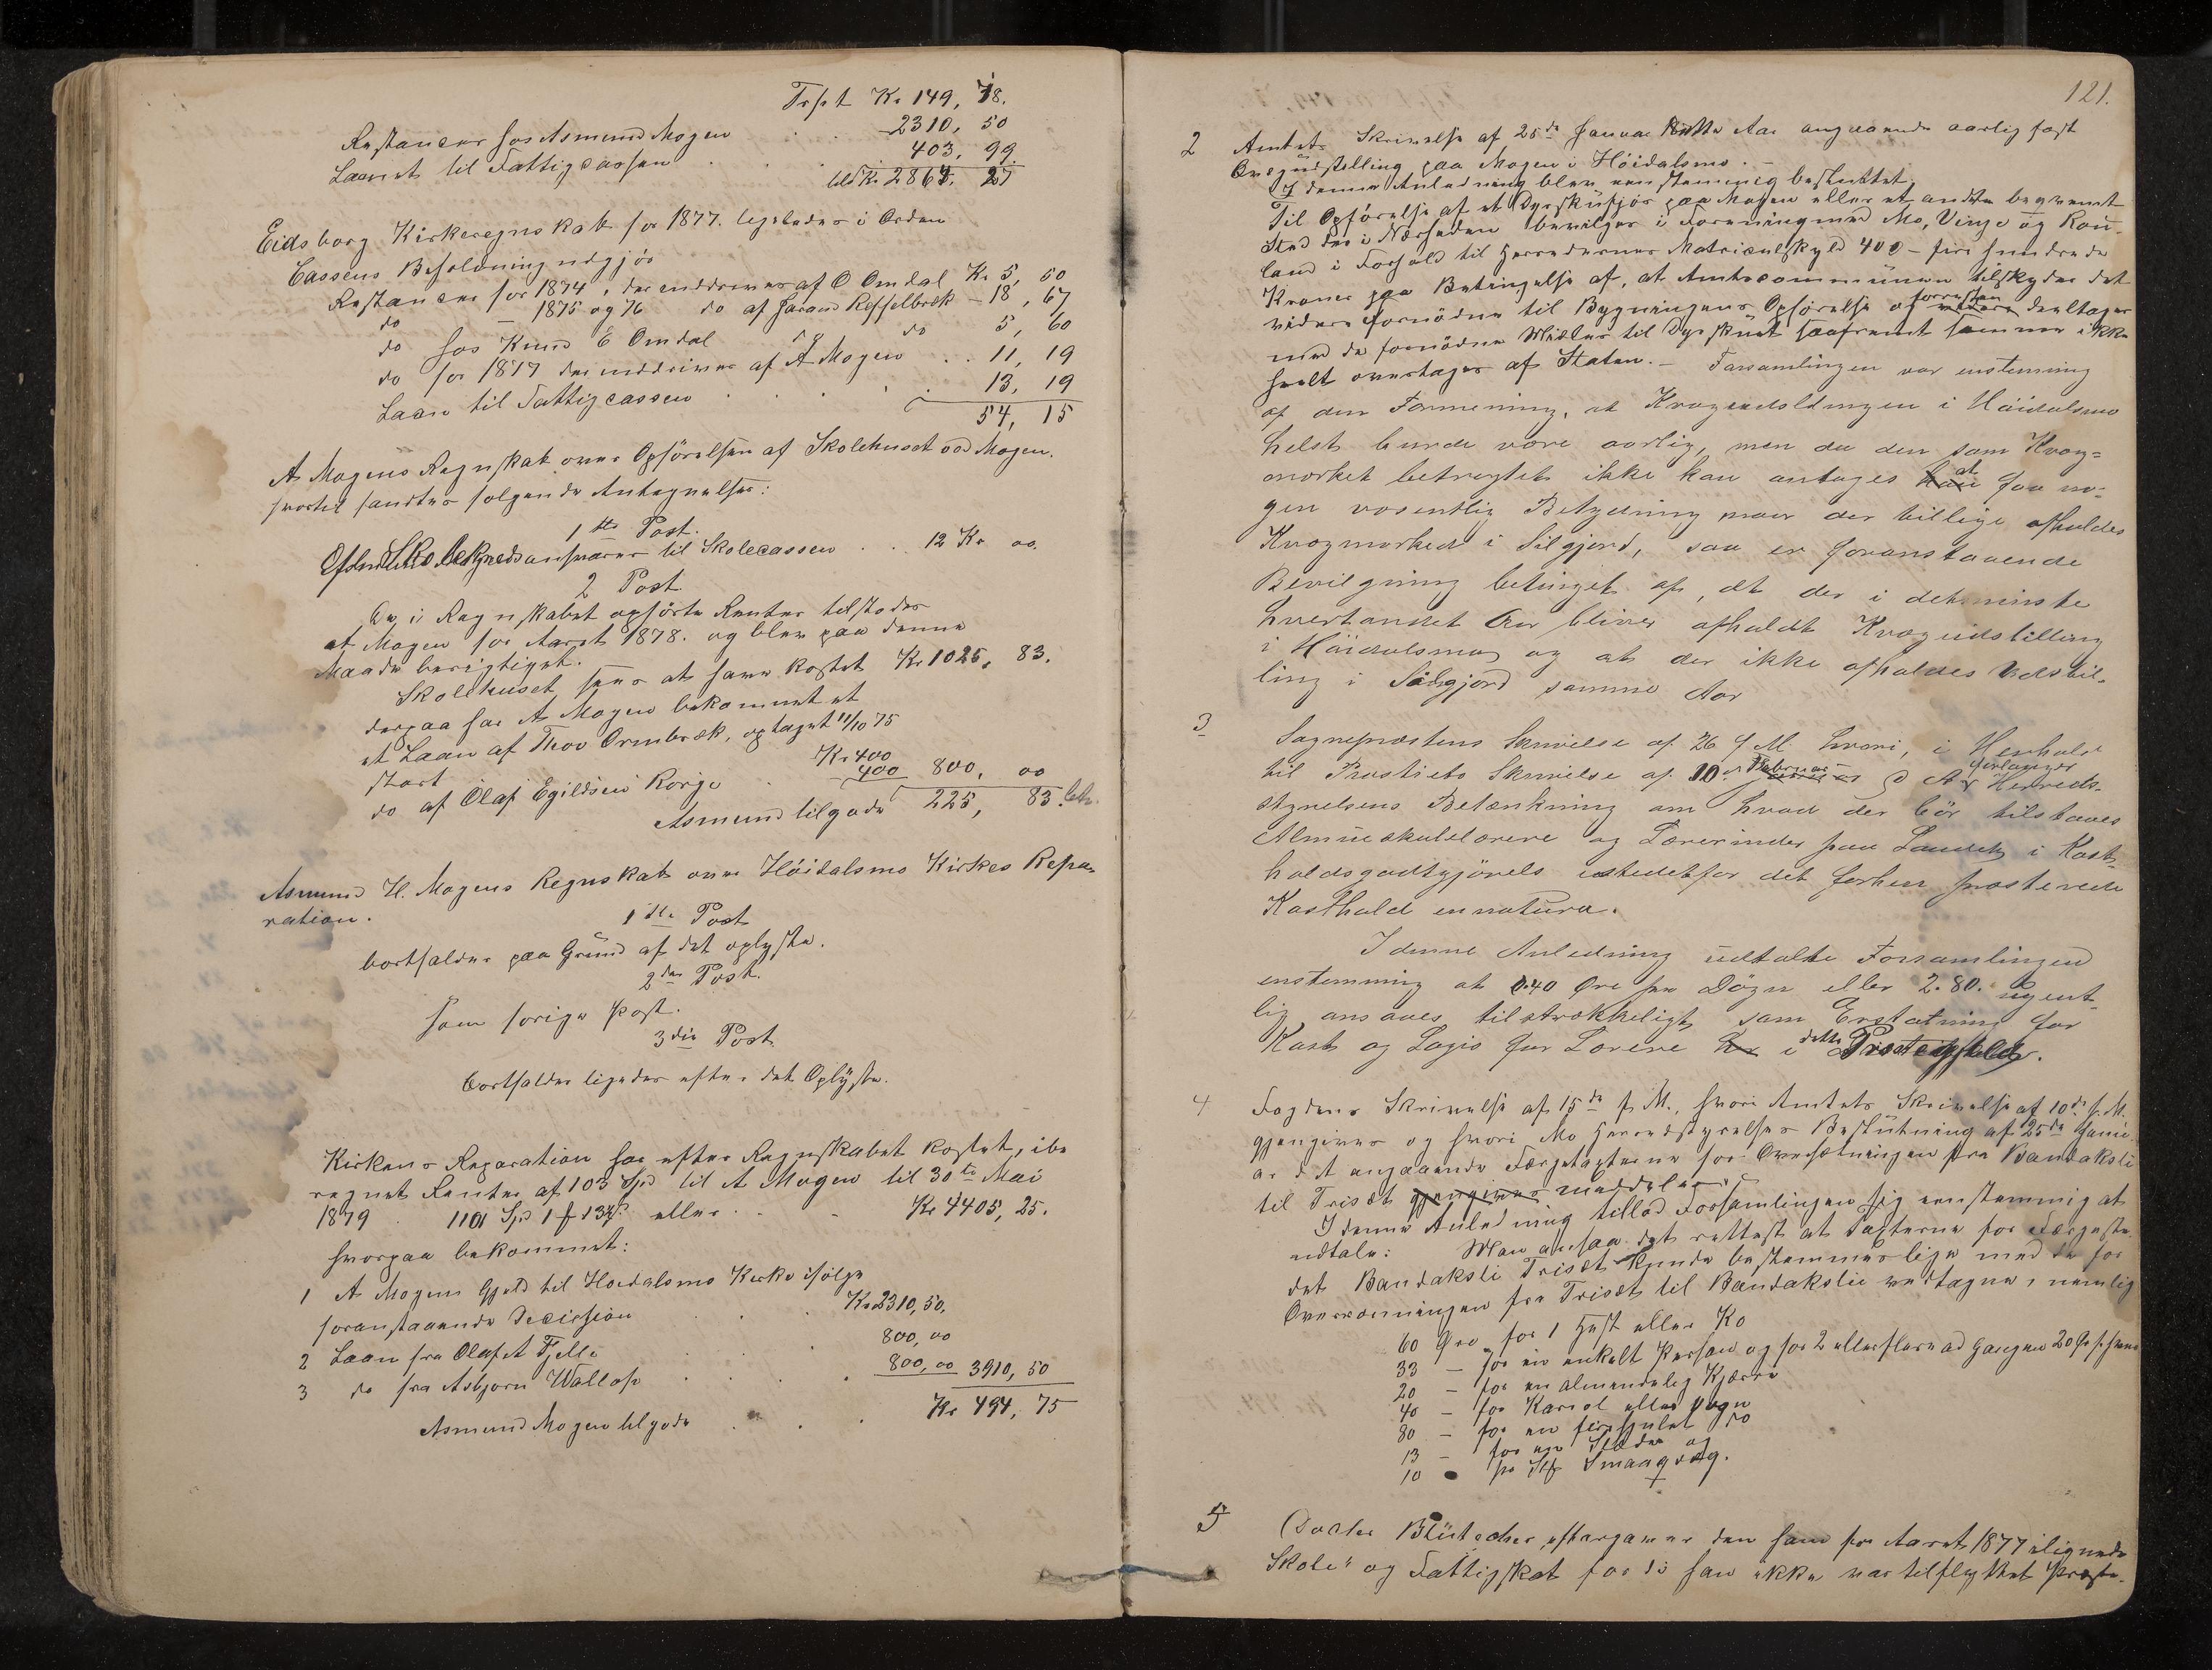 Trpt Kr 149, 78.
Restancer hos Asmund Mogen . . 2310, 50
Laant til Fattigcassen . . . 403, 99.
tils Kr 2864, 27
Eidsborg Kirkeregnskab for 1877. legledes i Orden
Cassens Beholdning udgjør
Restancer for 1874, der inddrives af O Omdal Kr 5, 50
do — 1875 og 76 do af Harand — 18, 67
do hos Knud E Omdal do 5, 60
do for 1877 der inddrives af A Mogen . . 11, 19
Laan til Fattigcassen . . . . 13, 19
54, 15
A Mogens Regnskab over Opförelsen af Skolehuset ved Mogen.
hvortil fandtes følgende Antegnelser:
1ste Post.
til Skolecassen . . 12 Kr 00.
2 Post
De i Regnskabet opförte Renter tilstodes
A Mogen for Aaret 1878. og blev paa denne
Maade berigtiget.
Skolehuset sees at have kostet Kr 1025, 83.
derpaa har A Mogen bekommet et
et Laan af Thov Ormbræk, optaget 11/10 75
stort Kr 400
do af Olaf Egildsen Rorge 400 800, 00
Asmund tilgode 225, 83. bet.
Asmund H. Mogens Regnskab over Höidalsmo Kirkes Repa-
ration.
1ste Post
bortfalder paa Grund af det oplyste.
2den Post.
Som forige Post.
3die Post
Bortfalder ligeledes efter det Oplyste.
Kirkens Reparation har efter Regnskabet kostet, ibe
regnet Renter af 103 Spd til A Mogen til 30te Mai
1879 . 1101 Spd 1 13 eller . . Kr 4405, 25.
hvorpaa bekommet:
1 A Mogens Gjeld til Hoidalsmo Kirke ifølge
foranstaaende Decission . . Kr 2310, 50.
2 Laan fra Olaf A Fjelli . . 800, 00
3 do fra Asbjørn Wallop . . . 800, 00 3910, 50
Asmund Mogen tilgode . . . Kr 494, 75
121.
2 Amtets Skrivelse af 25de Januar dette Aar angaaende aarlig fast
Qvægudstilling paa Mogen i Höidalsmo. —
I denne Anledning blev eenstemmig besluttet
Til Opförelse af et Dyrskufjøs paa Mogen eller et andet beqvemt
Sted der i Nærheden bevilges i Forening med Mo, Vinje og Rau-
land i Forhold til Herredernes Matriculskyld 400 — fire hundrede
Kroner paa Betingelse af, at Amtscommunen tilskyder det
videre fornödne til Bygningens Opförelse og forresten deeltager
med de fornödne Midler til Dyrskuet saafremt samme ikke
heelt overtages af Staten. — Forsamlingen var enstemmig
af den Formening, at Kvægudstillingen i Höidalsmo
helst burde være aarlig, men da den som Kvæg=
market betragtet ikke kan antages at faa no=
gen væsentlig Betydning naar der tillige afholdes
Kvægmarked i Silgjord, saa er foranstaaende
Bevilgning betinget af, at der i det mindste
hvertandet Aar bliver afholdt Kvægudstilling
i Höidalsmo og at der ikke afholdes Udstil-
ling i Silgjord samme Aar
3 Sognepræstens Skrivelse af 26 f M hvori, i Henhold
til Provstiets Skrivelse af 10de Februar d A forlanges Herreds-
styrelsens Betænkning om hvad der bör tilstaaes
Almueskolelærere og Lærerinder paa Landet i Kost-
holdsgodtgjörelse istedetfor det forhen præsterede
Kosthold in natura.
I denne Anledning udtalte Forsamlingen
enstemmig at 0.40 Øre per Dögn eller 2.80. ugent-
lig ansaaes tilstrækkeligt som Erstatning for
Kost og Logis for Lærere i dette Præstegjeld.
4 Fogdens Skrivelse af 15de f. M., hvori Amtets Skrivelse af 10de f. M.
gjengives og hvori Mo Herredstyrelses Beslutning af 25de Janu-
ar d A angaaende Færgetaxterne for Oversætningen fra Bandaksli
til Trisæt gjengives meddeles.
I denne Anledning tillod Forsamlingen sig eenstemmig at
udtale: Man ansaa det rettest at Taxterne for Færgeste-
det Bandaksli Trisæt kunde bestemmes lige med de for
Overroningen fra Trisæt til Bandakslie vedtagne, nemlig
60 Øre for 1 Hest eller Ko
33 — for en enkelt Person og for 2 eller flere ad Gangen 20 Ør p. hver
20 — for en almindelig Kjærre
40 — for Kariol eller Vogn
80 — for en firehjulet do
13 — for en Slæde og
10 pr Stk Smaaqvæg.
5 Doctor Blütecher eftergaves den ham for Aaret 1877 ilignede
Skole" og Fattigskat fordi han ikke var tilflyttet Præste-